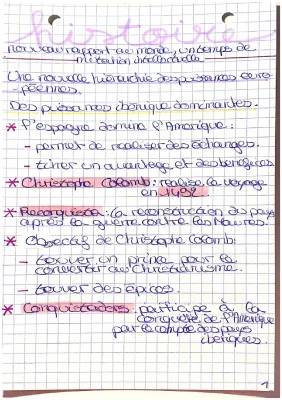 histoire
nouveau rapport au monde, un temps de
mutation intellectuelle
Une nouvelle hiérarchie des puissances euro-
péennes.
Des puissances ibérique dominantes.
* l'espagne domine l'Amérique :
- permet de réaliser des échanges.
- tirer un avantage et des bénéfices
* Christophe Colomb : réalise le voyage
en 1492
* Reconquista : la reconstruction du pays
après la guerre contre les Maures.
* Objectif de Christophe Colomb :
- trouver un prince pour le
convertir au Christianisme.
- trouver des épices.
* Conquistadors : participe à la
conquête de l'Amérique
par le compte des pays
ibériques.
1